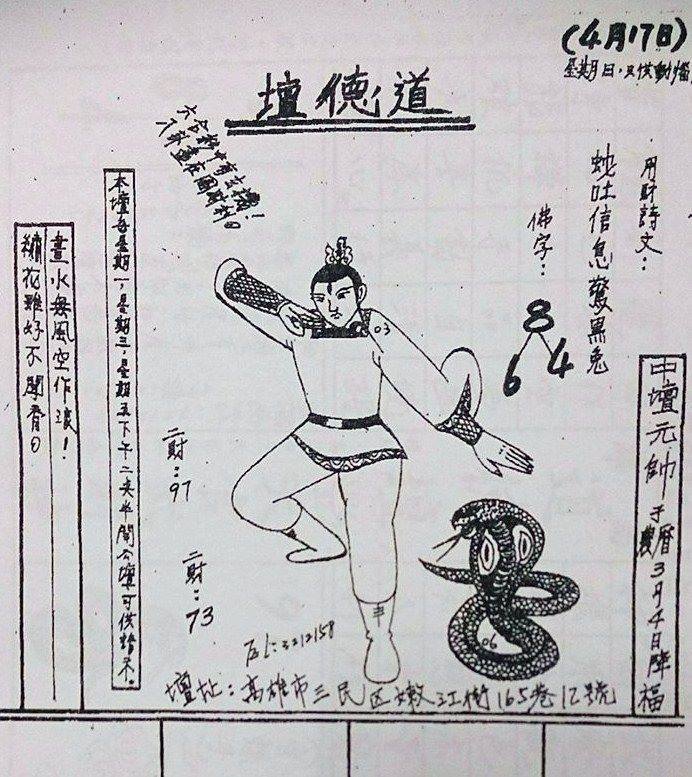 (4月17日)
星期日,只供動
道德壇
用財詩文:
蛇吐信息驚黑兔
佛字:
8
6 4
中壇元帥于農曆3月4日降福
六合彩中有玄機!
03
06
二財:97
二財:73
本壇每星期一,星期三,星期五下午二点半開公壇可供
畫水無風空作浪!
繡花雖好不聞香。
TEL:3212158
壇址:高雄市三民区嫩江街165巷12號